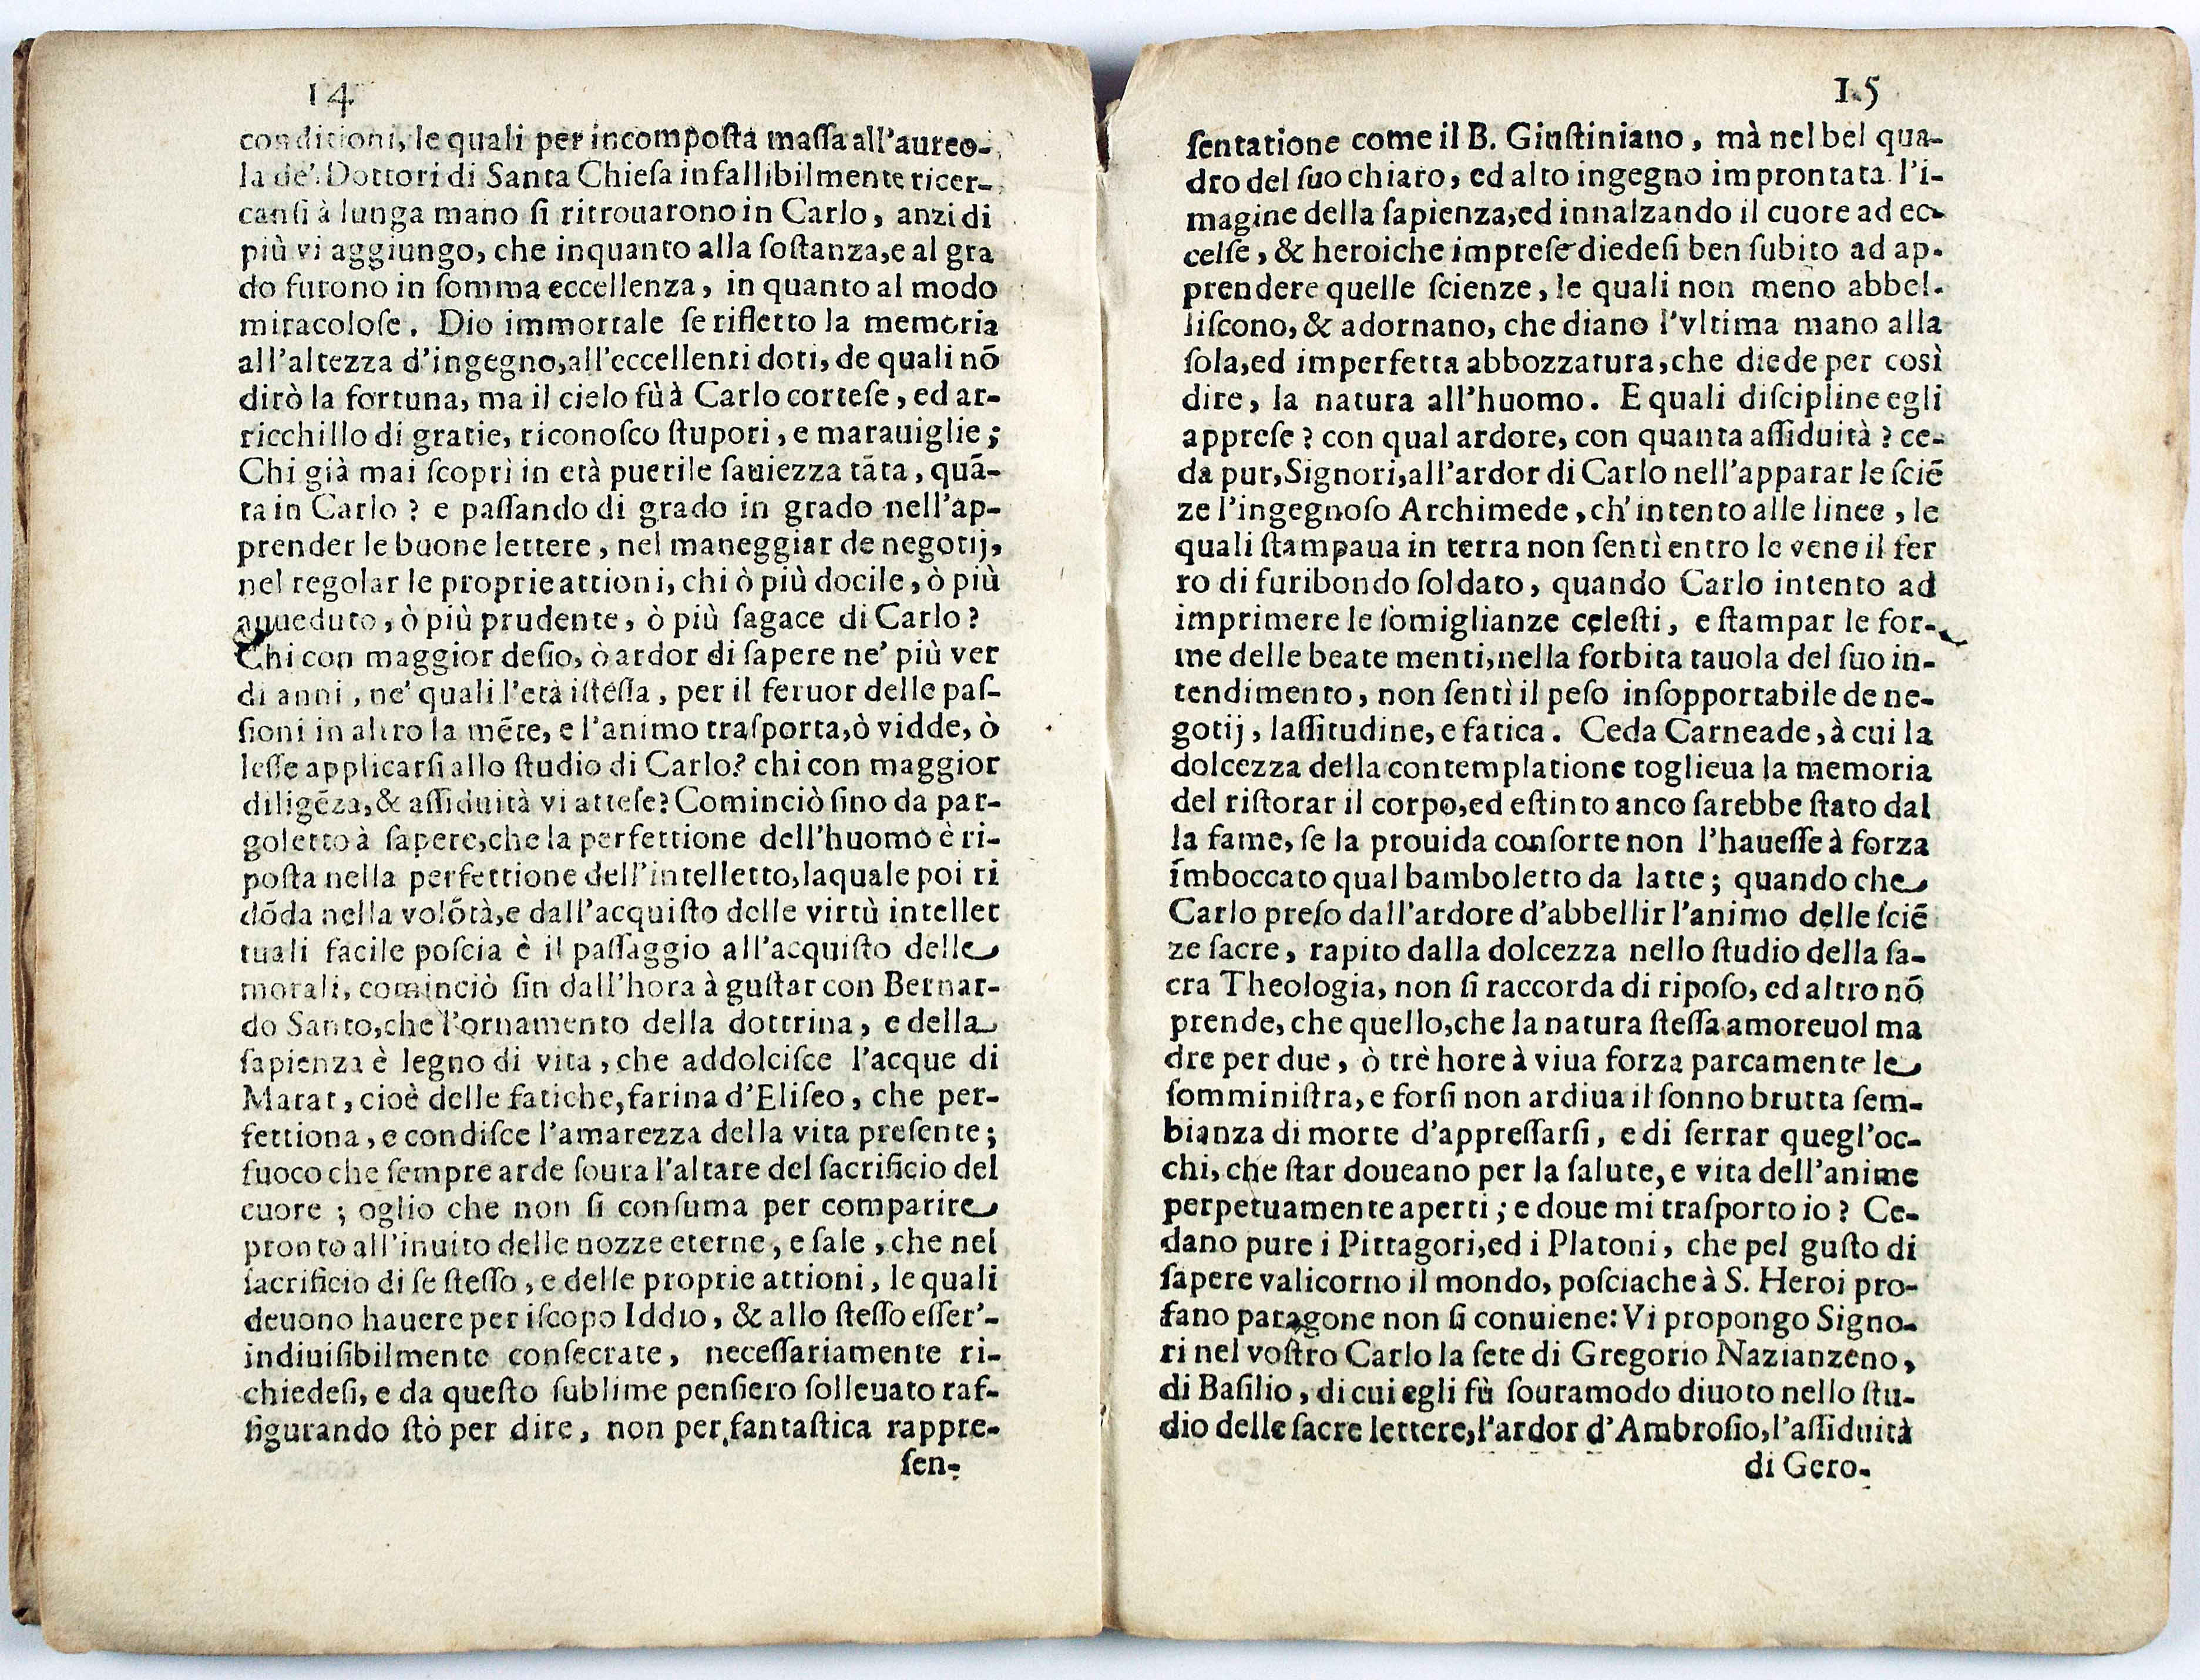 14
conditioni, le quali per incomposta massa all'aureo-
la de' Dottori di Santa Chiesa infallibilmente ricer-
cansi à lunga mano si ritrouarono in Carlo, anzi di
più vi aggiungo, che inquanto alla sostanza,e al gra
do furono in somma eccellenza, in quanto al modo
miracolose. Dio immortale se rifletto la memoria
all'altezza d'ingegno,all'eccellenti doti, de quali nõ
dirò la fortuna, ma il cielo fù à Carlo cortese, ed ar-
ricchillo di gratie, riconosco stupori, e marauiglie;
Chi già mai scoprì in età puerile sauiezza tãta, quã-
ta in Carlo? e passando di grado in grado nell'ap-
prender le buone lettere, nel maneggiar de negotij,
nel regolar le proprie attioni, chi ò più docile, ò più
auueduto, ò più prudente, ò più sagace di Carlo?
Chi con maggior desio, ò ardor di sapere ne' più ver
di anni, ne' quali l'età istessa, per il feruor delle pas-
sioni in altro la mẽte, e l'animo trasporta,ò vidde, ò
lesse applicarsi allo studio di Carlo? chi con maggior
diligẽza,& assiduità vi attese? Cominciò sino da par-
goletto à sapere,che la perfettione dell'huomo è ri-
posta nella perfettione dell'intelletto,laquale poi ri
dõda nella volõtà,e dall'acquisto delle virtù intellet
tuali facile poscia è il passaggio all'acquisto delle
morali, cominciò sin dall'hora à gustar con Bernar-
do Santo,che l'ornamento della dottrina, e della
sapienza è legno di vita, che addolcisce l'acque di
Marat, cioè delle fatiche,farina d'Eliseo, che per-
fettiona, e condisce l'amarezza della vita presente;
fuoco che sempre arde soura l'altare del sacrificio del
cuore; oglio che non si consuma per comparire
pronto all'inuito delle nozze eterne, e sale, che nel
sacrificio di se stesso, e delle proprie attioni, le quali
deuono hauere per iscopo Iddio, & allo stesso esser'-
indiuisibilmente consecrate, necessariamente ri-
chiedesi, e da questo sublime pensiero solleuato raf-
figurando stò per dire, non per fantastica rappre-
sen-
15
sentatione come il B. Giustiniano, mà nel bel qua-
dro del suo chiaro, ed alto ingegno improntata l'i-
magine della sapienza,ed innalzando il cuore ad ec-
celse, & heroiche imprese diedesi ben subito ad ap-
prendere quelle scienze, le quali non meno abbel-
liscono, & adornano, che diano l'vltima mano alla
sola,ed imperfetta abbozzatura,che diede per così
dire, la natura all'huomo. E quali discipline egli
apprese? con qual ardore, con quanta assiduità? ce-
da pur,Signori,all'ardor di Carlo nell'apparar le sciẽ
ze l'ingegnoso Archimede, ch' intento alle linee, le
quali stampaua in terra non sentì entro le vene il fer
ro di furibondo soldato, quando Carlo intento ad
imprimere le somiglianze celesti, e stampar le for-
me delle beate menti,nella forbita tauola del suo in-
tendimento, non sentì il peso insopportabile de ne-
gotij, lassitudine, e fatica. Ceda Carneade, à cui la
dolcezza della contemplatione toglieua la memoria
del ristorar il corpo,ed estinto anco sarebbe stato dal
la fame, se la prouida consorte non l'hauesse à forza
imboccato qual bamboletto da latte; quando che
Carlo preso dall'ardore d'abbellir l'animo delle sciẽ
ze sacre, rapito dalla dolcezza nello studio della sa-
cra Theologia, non si raccorda di riposo, ed altro nõ
prende, che quello,che la natura stessa amoreuol ma
dre per due, ò trè hore à viua forza parcamente le
somministra, e forsi non ardiua il sonno brutta sem-
bianza di morte d'appressarsi, e di serrar quegl'oc-
chi, che star doueano per la salute, e vita dell'anime
perpetuamente aperti; e doue mi trasporto io? Ce-
dano pure i Pittagori,ed i Platoni, che pel gusto di
sapere valicorno il mondo, posciache à S. Heroi pro-
fano paragone non si conuiene: Vi propongo Signo-
ri nel vostro Carlo la sete di Gregorio Nazianzeno,
di Basilio, di cui egli fù souramodo diuoto nello stu-
dio delle sacre lettere,l'ardor d'Ambrosio,l'assiduità
di Gero-